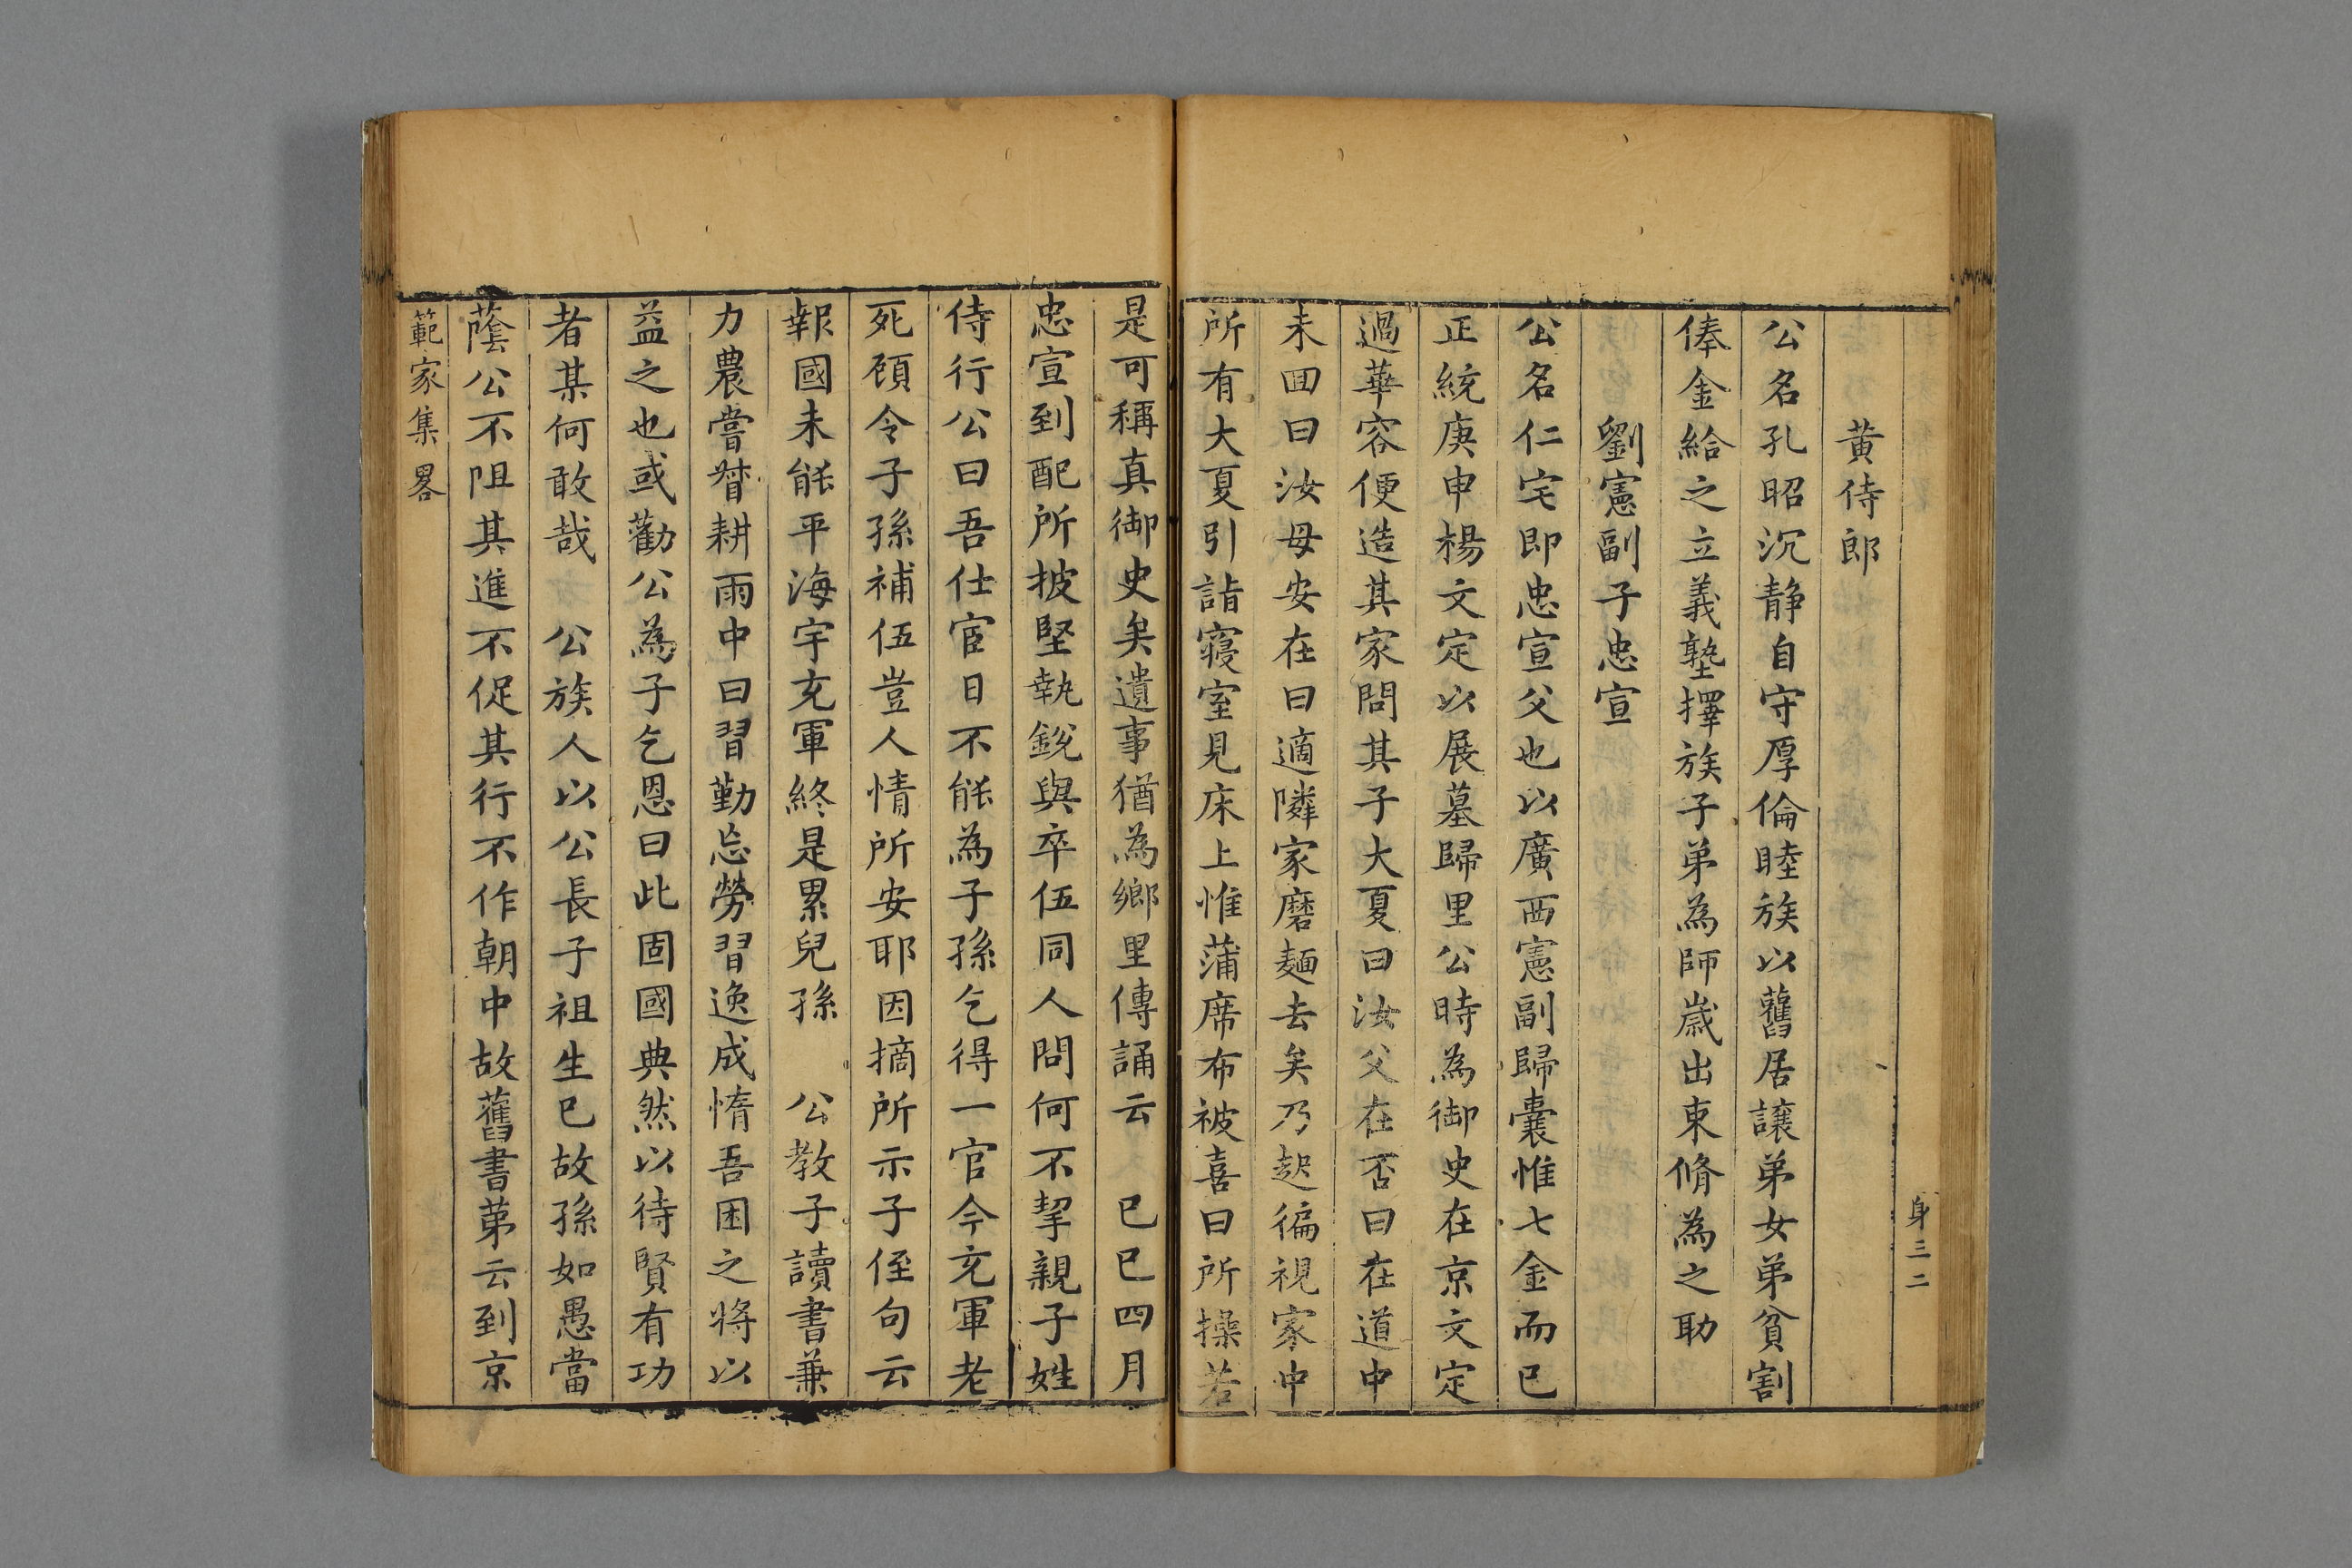 身三二
黄侍郎
公名孔昭沉静自守厚倫睦族以舊居讓弟女弟貧割
俸金給之立義塾擇族子弟為師嵗出束脩為之助
劉憲副子忠宣
公名仁宅即忠宣父也以廣西憲副歸囊惟七金而已
正統庚申楊文定以展墓歸里公時為御史在京文定
過華容便造其家問其子大夏曰汝父在否曰在道中
未囬曰汝母安在曰適隣家磨麵去矣乃起徧視家中
所有大夏引詣寢室見床上惟蒲席布被喜曰所操若
是可稱真御史矣遺事猶為鄉里傳誦云 已巳四月
忠宣到配所披堅執銳與卒伍同人問何不挈親子姓
侍行公曰吾仕宦日不能為子孫乞得一官今充軍老
死頋令子孫補伍豈人情所安耶因摘所示子侄句云
報國未能平海宇充軍終是累兒孫 公教子讀書兼
力農嘗督耕雨中曰習勤忘勞習逸成惰吾困之将以
益之也或勸公為子乞恩曰此固國典然以待賢有功
者某何敢哉 公族人以公長子祖生已故孫如愚當
蔭公不阻其進不促其行不作朝中故舊書苐云到京
範家集畧